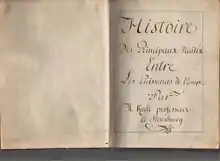 Histoire
Des Principaux Traités
Entre
Les Puissances de l'Europe
Par
M. Koch professeur
à Strasbourg